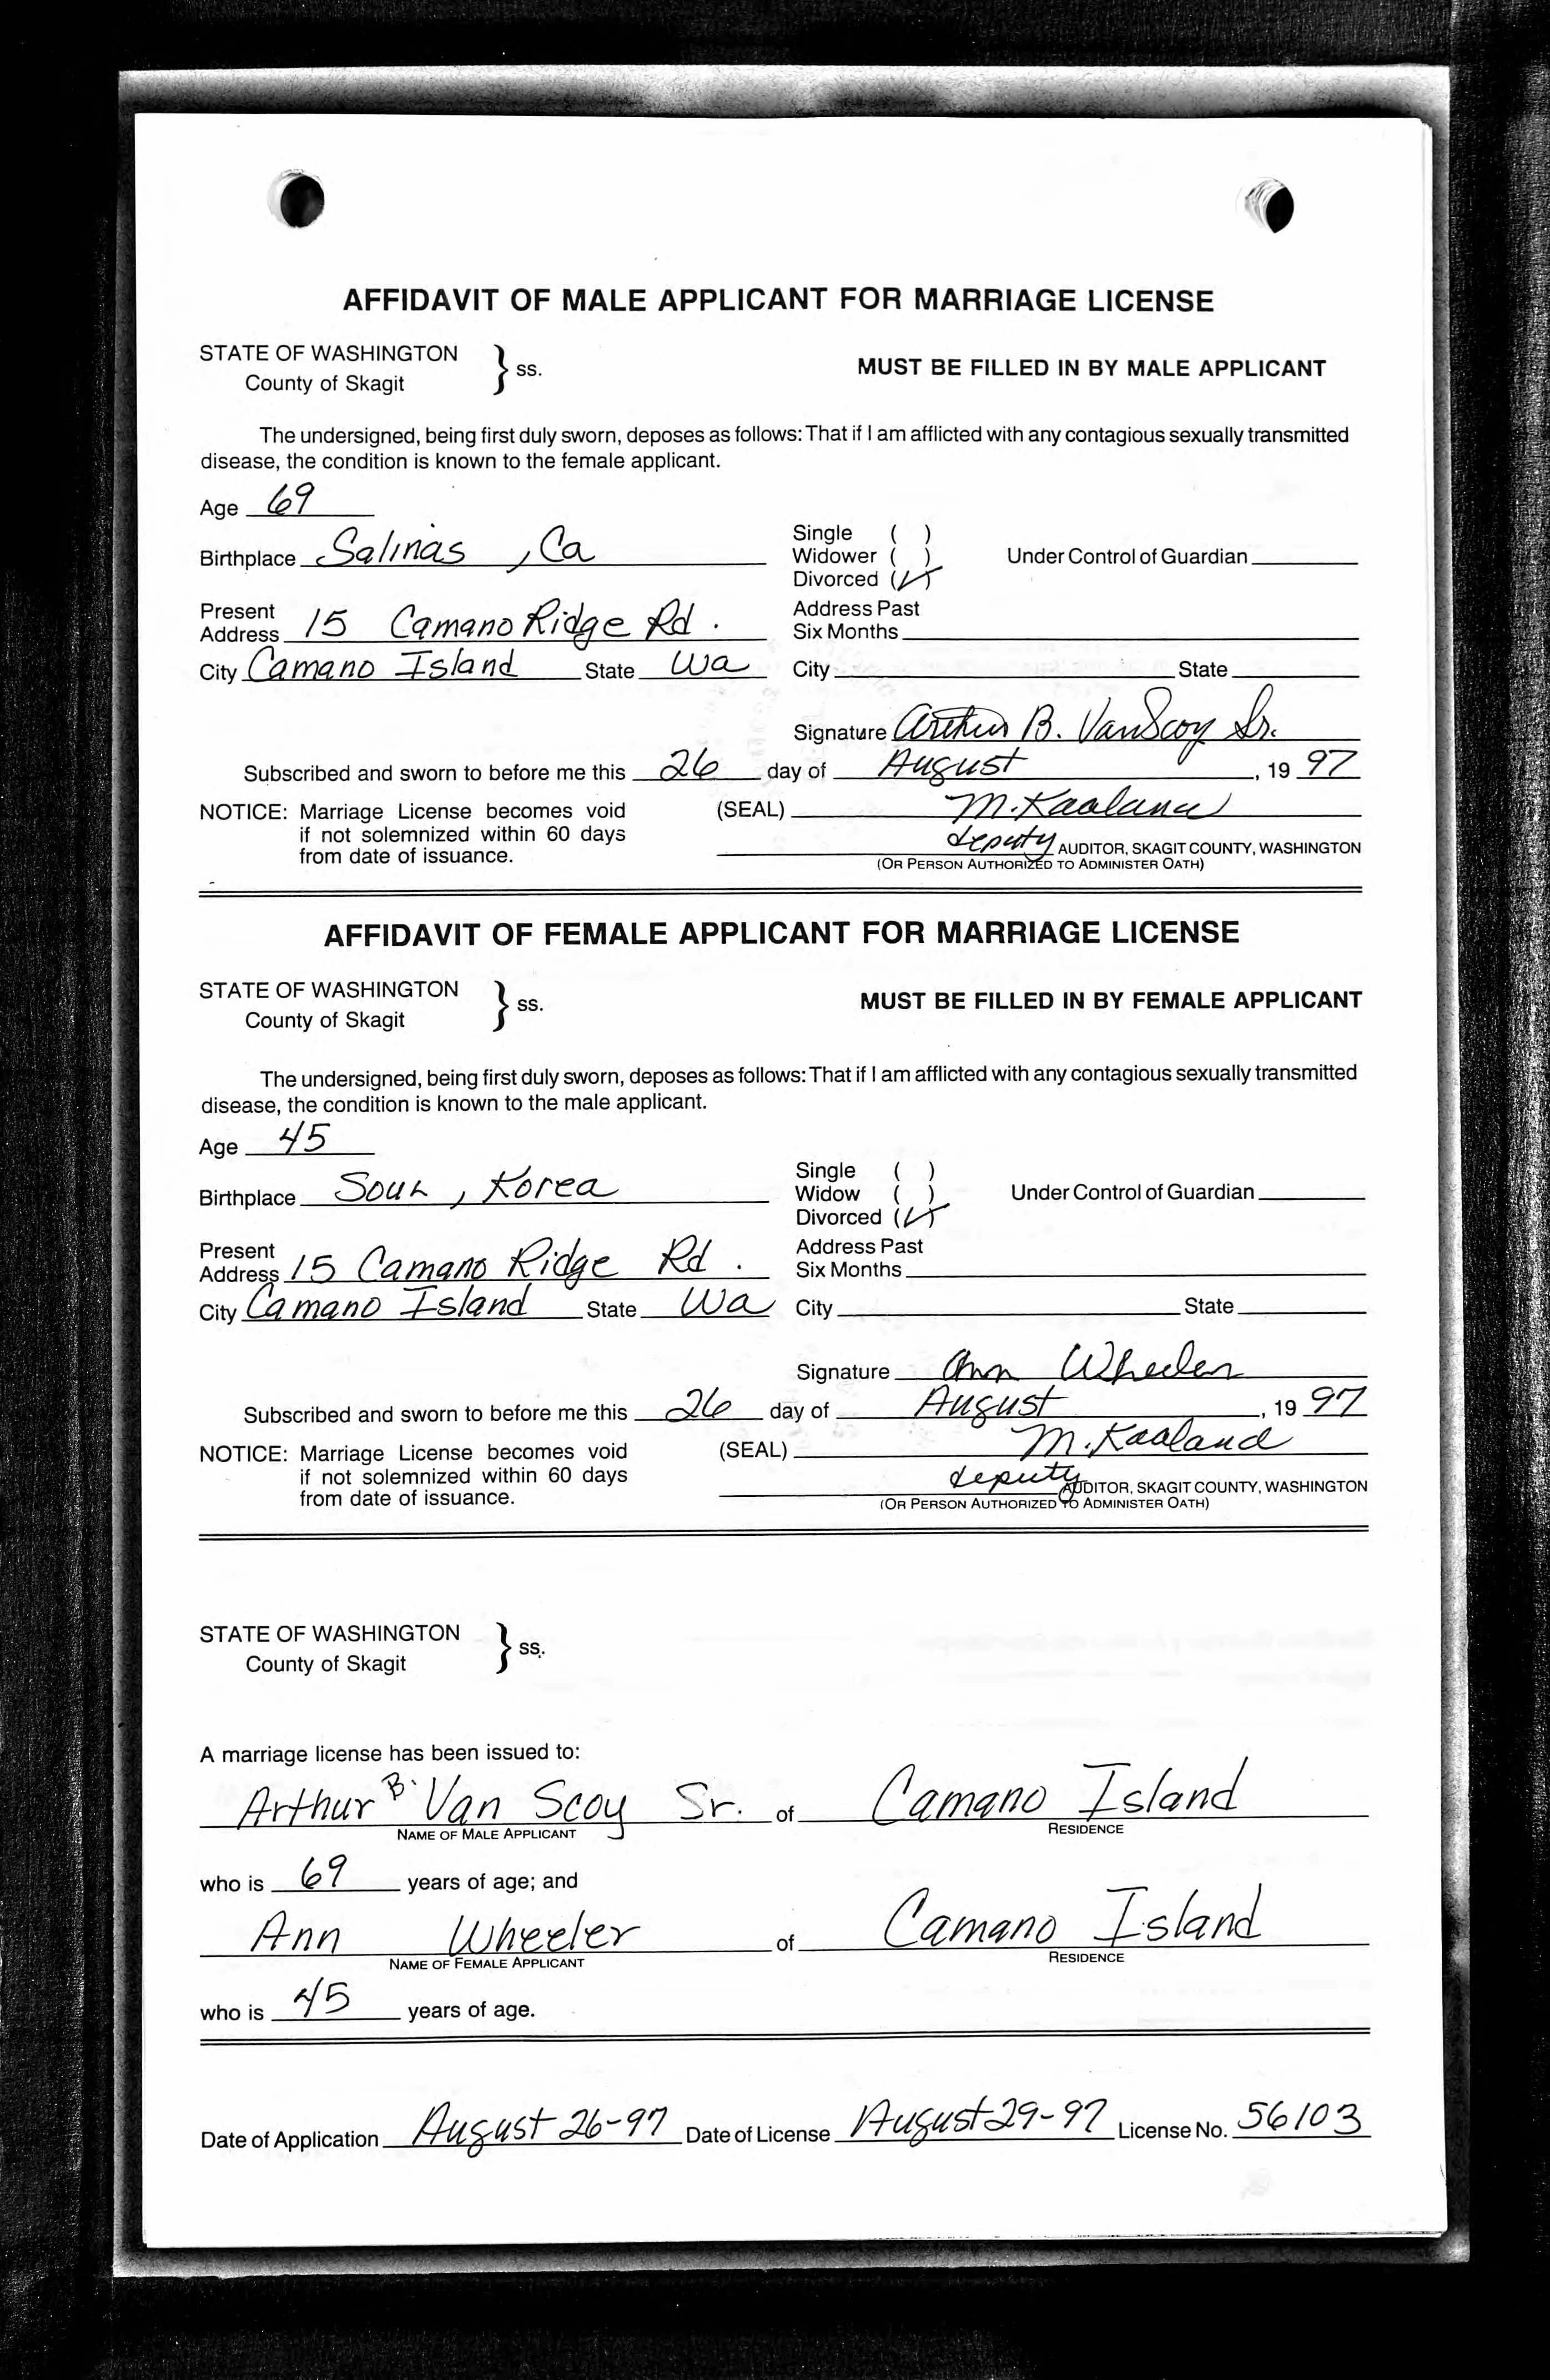 AFFIDAVIT OF MALE APPLICANT FOR MARRIAGE LICENSE
STATE OF WASHINGTON } ss. MUST BE FILLED IN BY MALE APPLICANT
County of Skagit
The undersigned, being first duly sworn, deposes as follows: That if I am afflicted with any contagious sexually transmitted
disease, the condition is known to the female applicant.
Age 69
Birthplace Salinas, Ca
Single ( )
Widower ( ) Under Control of Guardian
Divorced (✓)
Present Address 15 Camano Ridge Rd. Address Past Six Months
City Camano Island State Wa City State
Signature Arthur B. VanScoy Sr.
Subscribed and sworn to before me this 26 day of August, 19 97
NOTICE: Marriage License becomes void (SEAL) M. Kaaland
if not solemnized within 60 days deputy AUDITOR, SKAGIT COUNTY, WASHINGTON
from date of issuance. (OR PERSON AUTHORIZED TO ADMINISTER OATH)
AFFIDAVIT OF FEMALE APPLICANT FOR MARRIAGE LICENSE
STATE OF WASHINGTON } ss. MUST BE FILLED IN BY FEMALE APPLICANT
County of Skagit
The undersigned, being first duly sworn, deposes as follows: That if I am afflicted with any contagious sexually transmitted
disease, the condition is known to the male applicant.
Age 45
Birthplace Soul, Korea
Single ( )
Widow ( ) Under Control of Guardian
Divorced (✓)
Present Address 15 Camano Ridge Rd. Address Past Six Months
City Camano Island State Wa City State
Signature Ann Wheeler
Subscribed and sworn to before me this 26 day of August, 19 97
NOTICE: Marriage License becomes void (SEAL) M. Kaaland
if not solemnized within 60 days deputy AUDITOR, SKAGIT COUNTY, WASHINGTON
from date of issuance. (OR PERSON AUTHORIZED TO ADMINISTER OATH)
STATE OF WASHINGTON } ss.
County of Skagit
A marriage license has been issued to:
Arthur B. Van Scoy Sr. of Camano Island
NAME OF MALE APPLICANT RESIDENCE
who is 69 years of age; and
Ann Wheeler of Camano Island
NAME OF FEMALE APPLICANT RESIDENCE
who is 45 years of age.
Date of Application August 26-97 Date of License August 29-97 License No. 56103